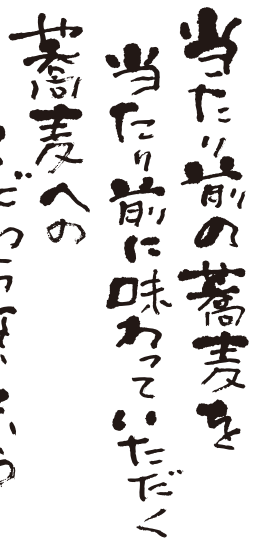 当たり前の蕎麦を
当たり前に味わっていただく
蕎麦への